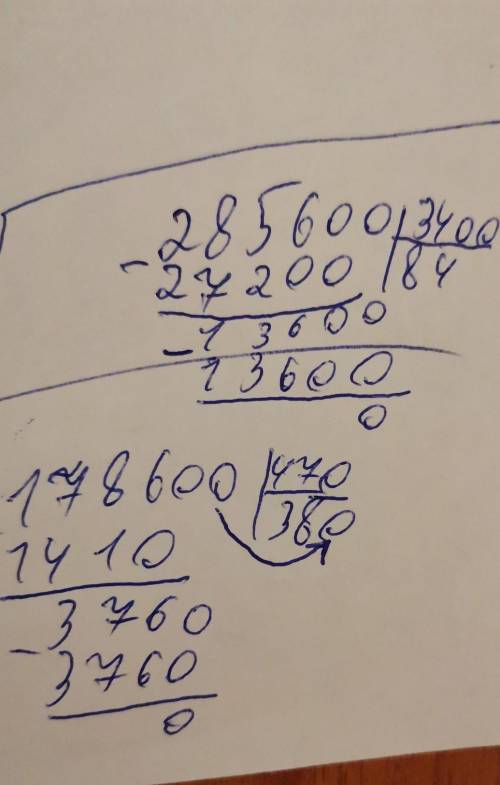 285600 3400
- 27200 84
- 13600
13600
0
178600 470
1410 380
3760
- 3760
0